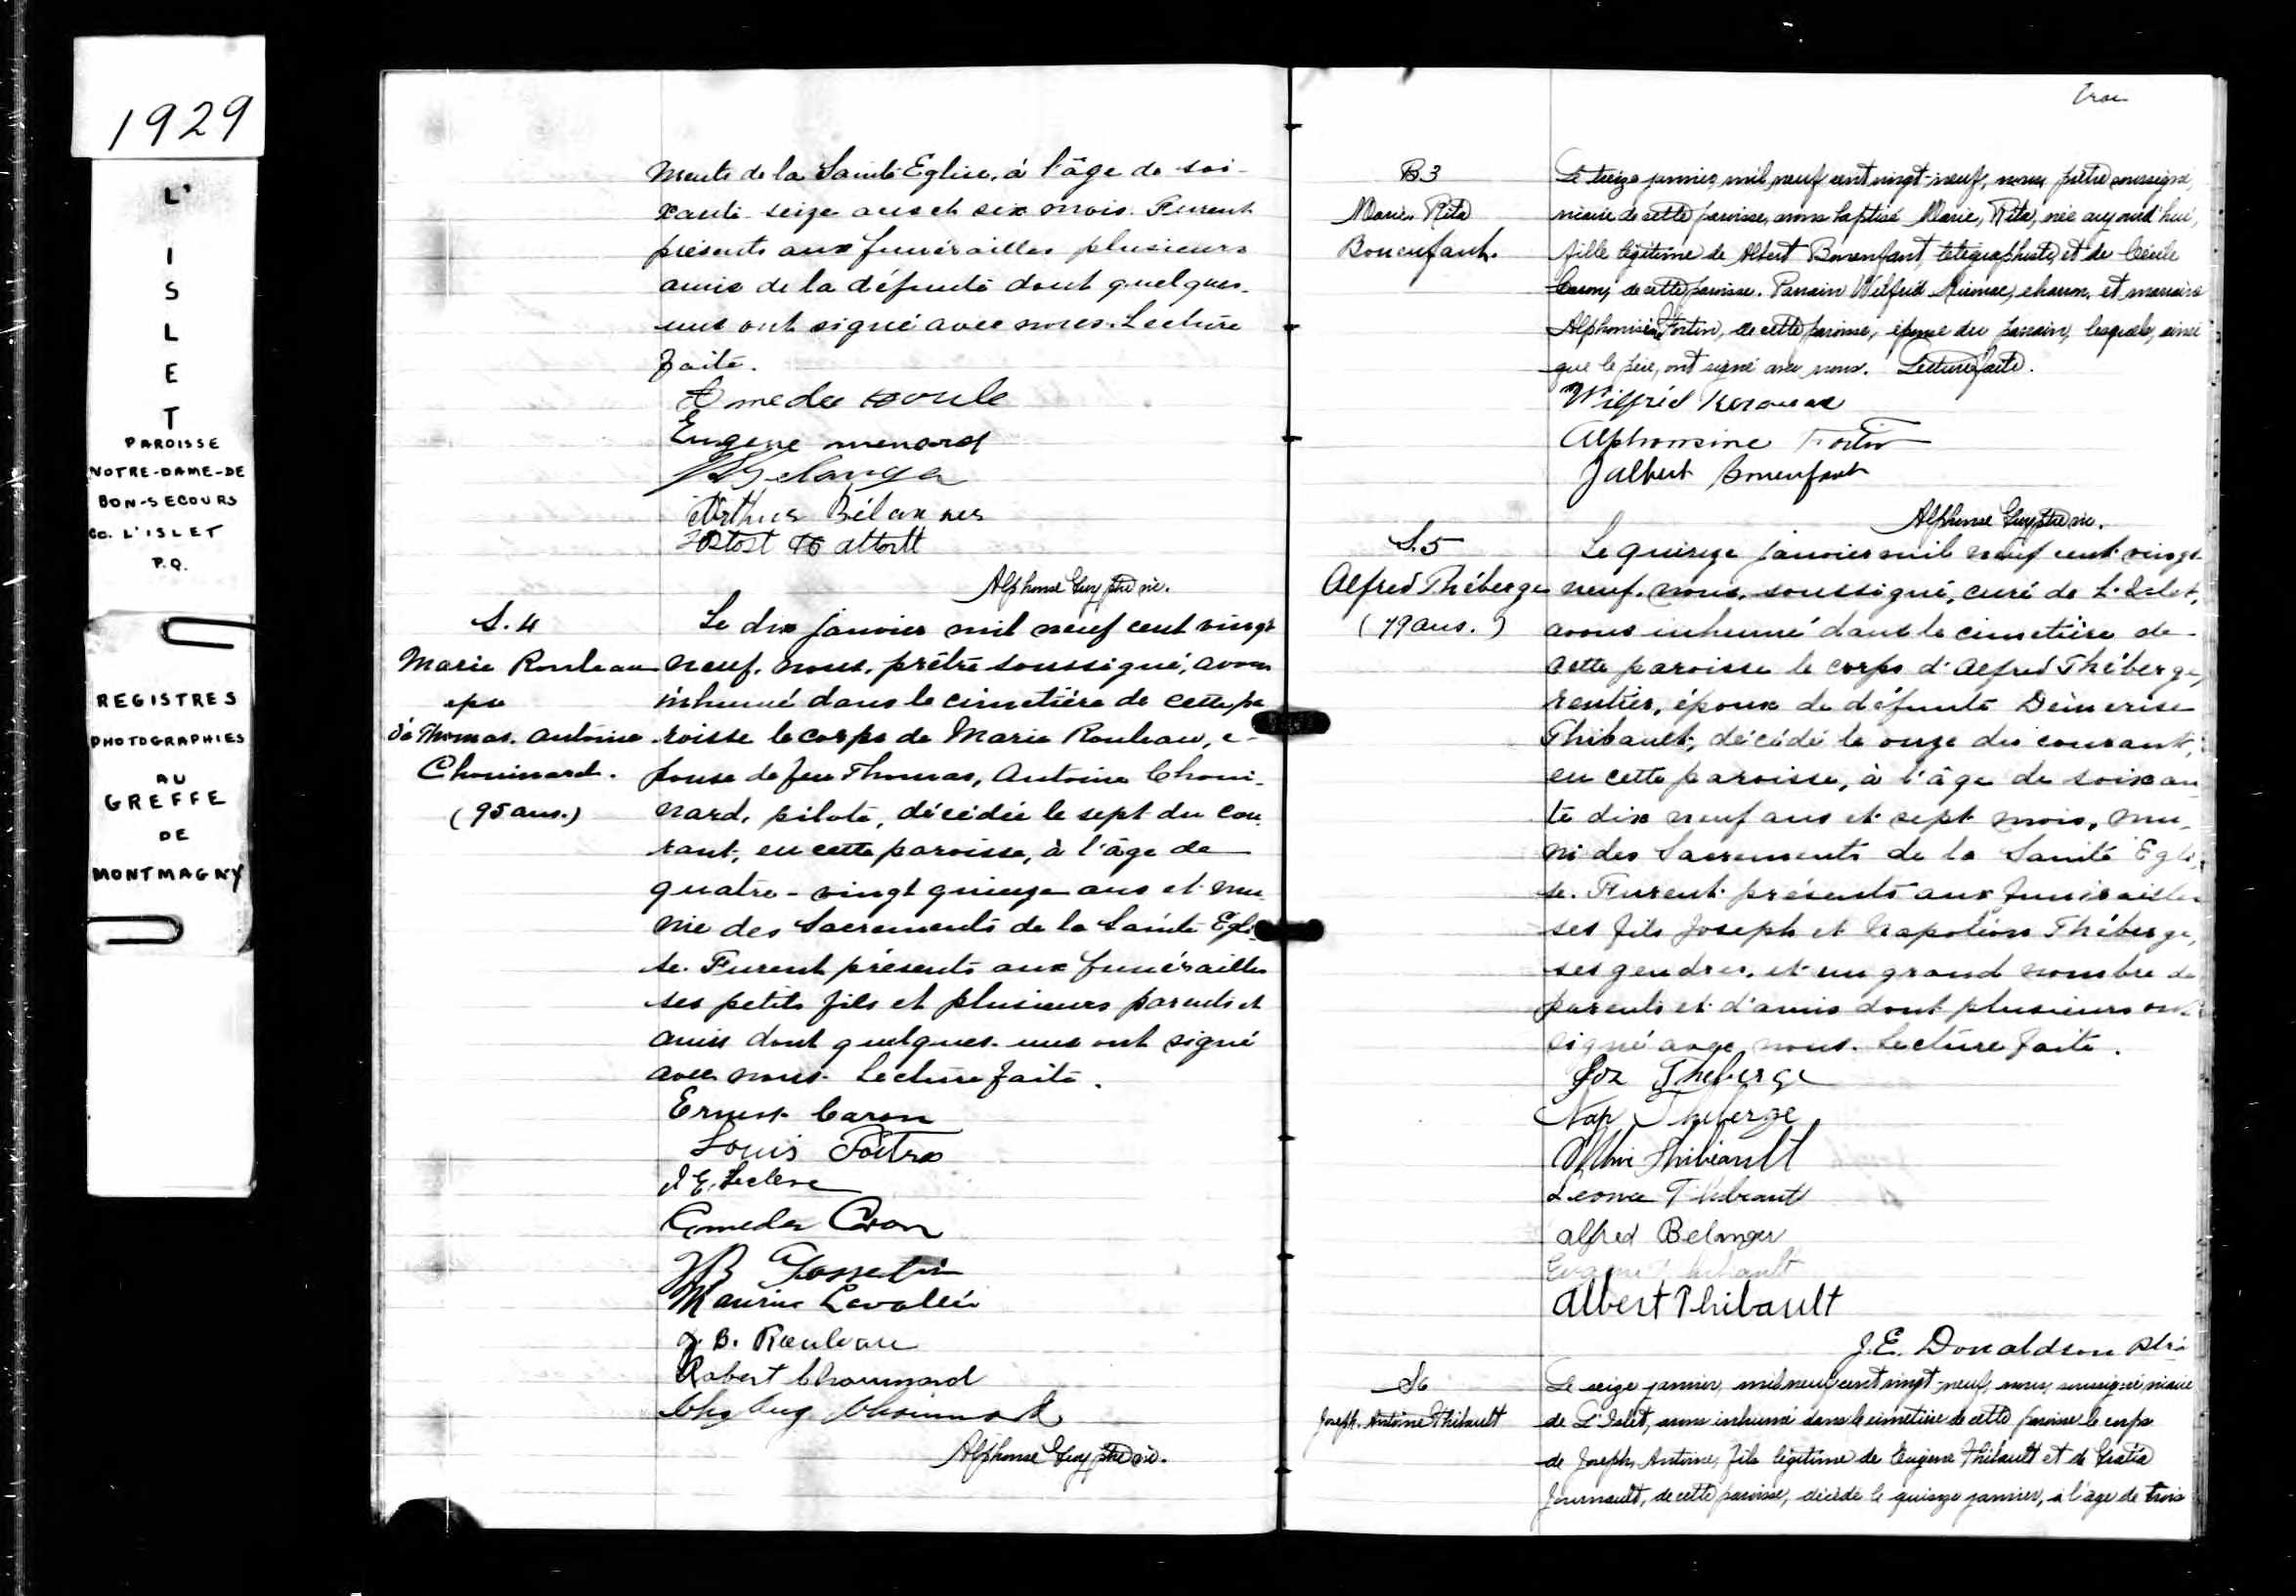 1929
L'
I
S
L
E
T
PAROISSE
NOTRE-DAME-DE
BON-SECOURS
Co. L'ISLET
P.Q.
REGISTRES
PHOTOGRAPHIES
AU
GREFFE
DE
MONTMAGNY
ments de la Sainte Eglise, à l'âge de soi-
xante seize ans et six mois. Furent
présents aux funérailles plusieurs
amis de la défunte dont quelques-
uns ont signé avec nous. Lecture
faite.
Eugene menard
Arthur
Alphonse Guy ptre vic.
S. 4
Marie Rouleau
epse
de Thomas. Antoine
Chouinard.
(95 ans.)
Le dix janvier mil neuf cent vingt
neuf, nous, prêtre soussigné, avons
inhumé dans le cimetière de cette pa
roisse le corps de Marie Rouleau, é-
pouse de feu Thomas, Antoine Choui-
nard, pilote, décédée le sept du cou-
rant, en cette paroisse, à l'âge de
quatre-vingt quinze ans et mu-
nie des Sacrements de la Sainte Egli-
se. Furent présents aux funérailles
ses petits fils et plusieurs parents et
amis dont quelques-uns ont signé
avec nous. Lecture faite.
Ernest Caron
Louis Poitras
J E. Leclerc
Amedee Caron
JB Gosselin
Maurice Lavallée
J. B. Rouleau
Robert Chouinard
Chouinard
Alphonse Guy ptre vic.
B3
Marie, Rita
Bonenfant.
Le treize janvier, mil neuf cent vingt-neuf, nous, prêtre soussigné,
vicaire de cette paroisse, avons baptisé Marie, Rita, née aujourd'hui,
fille légitime de Albert Bonenfant, télégraphiste, et de Cécile
Caron, de cette paroisse. Parrain Wilfrid charron, et marraine
Alphonsine Fortin, de cette paroisse, épouse du parrain, lesquels, ainsi
que le père, ont signé avec nous. Lecture faite.
Wilfrid Kerouac
Alphonsine Fortin
J albert Bonenfant
Alphonse Guy ptre vic.
S. 5
Alfred Théberge
(79 ans.)
Le quinze janvier mil neuf cent vingt
neuf, nous, soussigné, curé de L'Islet,
avons inhumé dans le cimetière de
cette paroisse le corps d'Alfred Théberge,
rentier, époux de défunte Démerise
Thibault, décédé le onze du courant,
en cette paroisse, à l'âge de soixan-
te dix neuf ans et sept mois, mu-
ni des Sacrements de la Sainte Egli-
se. Furent présents aux funérailles
ses fils Joseph et Napoléon Théberge,
ses gendres, et un grand nombre de
parents et d'amis dont plusieurs ont
signé avec nous. Lecture faite.
Jos Theberge
Nap Theberge
Thibeault
Léonce Thibeault
alfred Belanger
Albert Thibault
J. E. Donaldson ptre
S6
Joseph. Antoine Thibault
Le seize janvier, mil neuf cent vingt-neuf, nous, soussigné, vicaire
de L'Islet, avons inhumé dans le cimetière de cette paroisse le corps
de Joseph, Antoine, fils légitime de Eugène Thibault et de Gratia
de cette paroisse, décédé le quinze janvier, à l'âge de trois